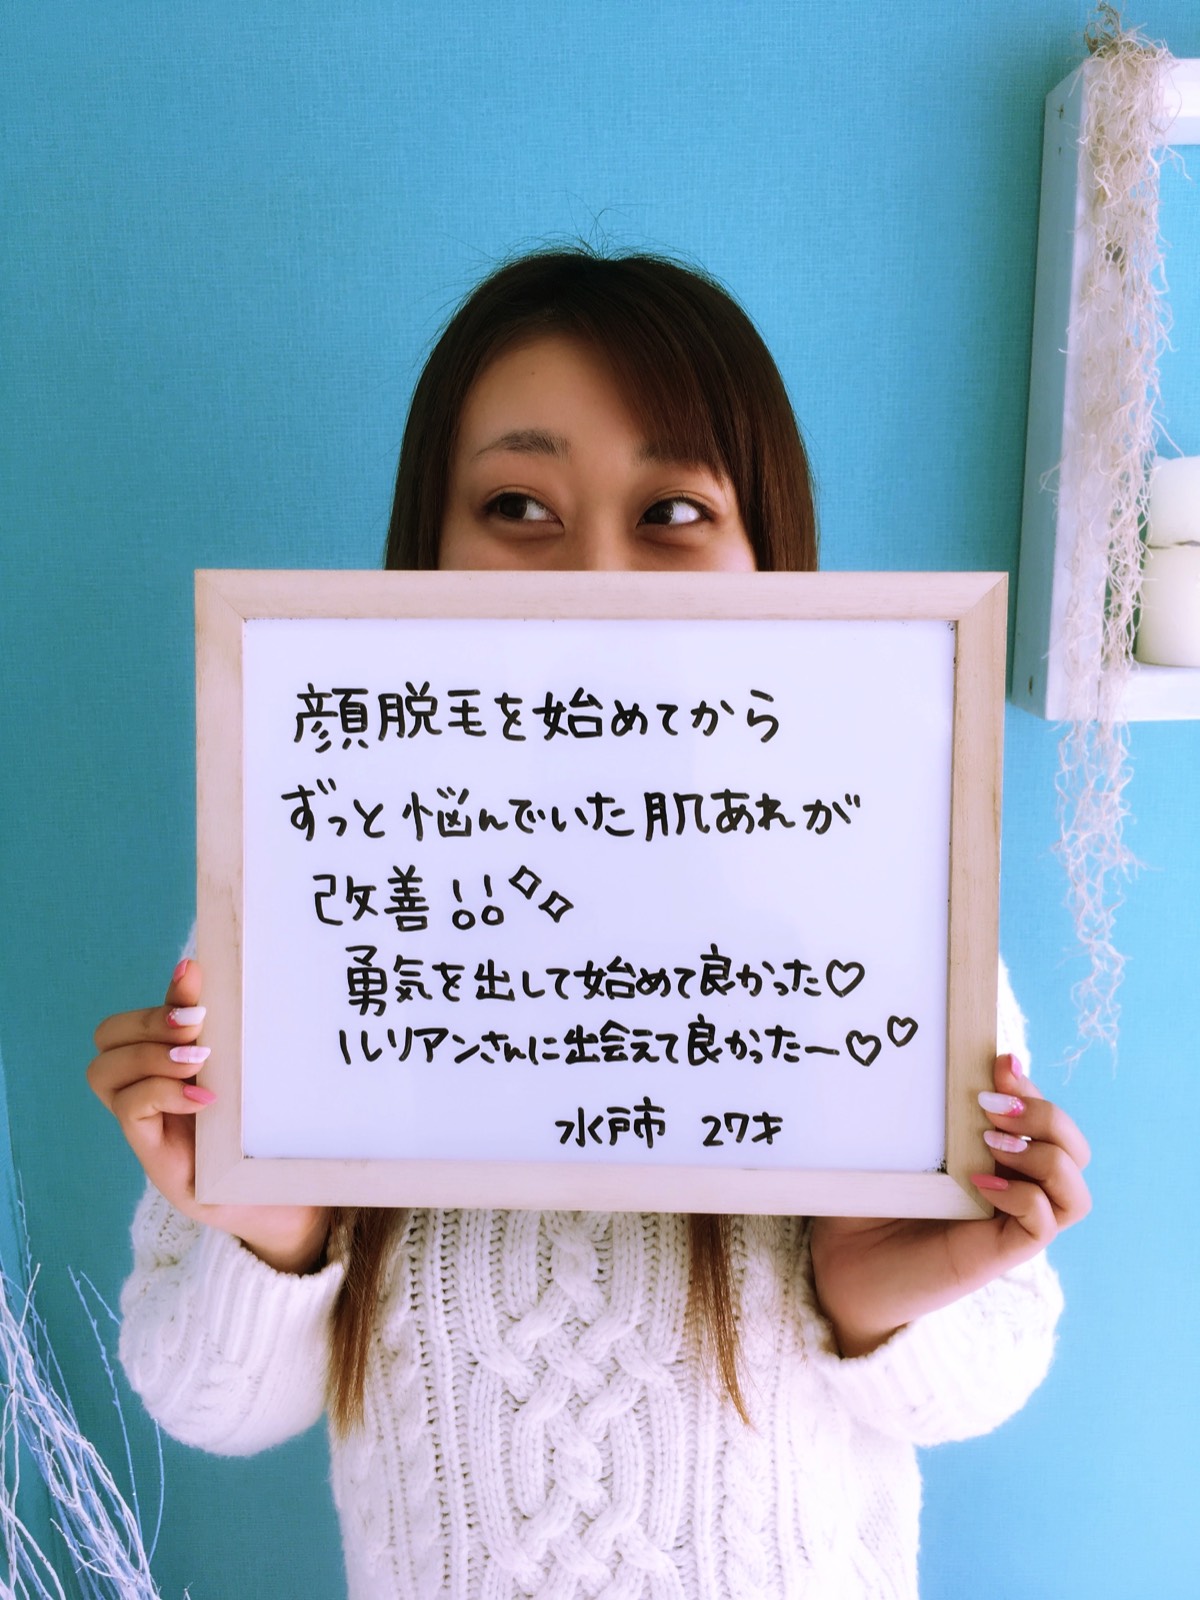 顔脱毛を始めてから
ずっと悩んでいた肌あれが
改善!!
勇気を出して始めて良かった♡
ルリアンさんに出会えて良かったー♡♡
水戸市 27才